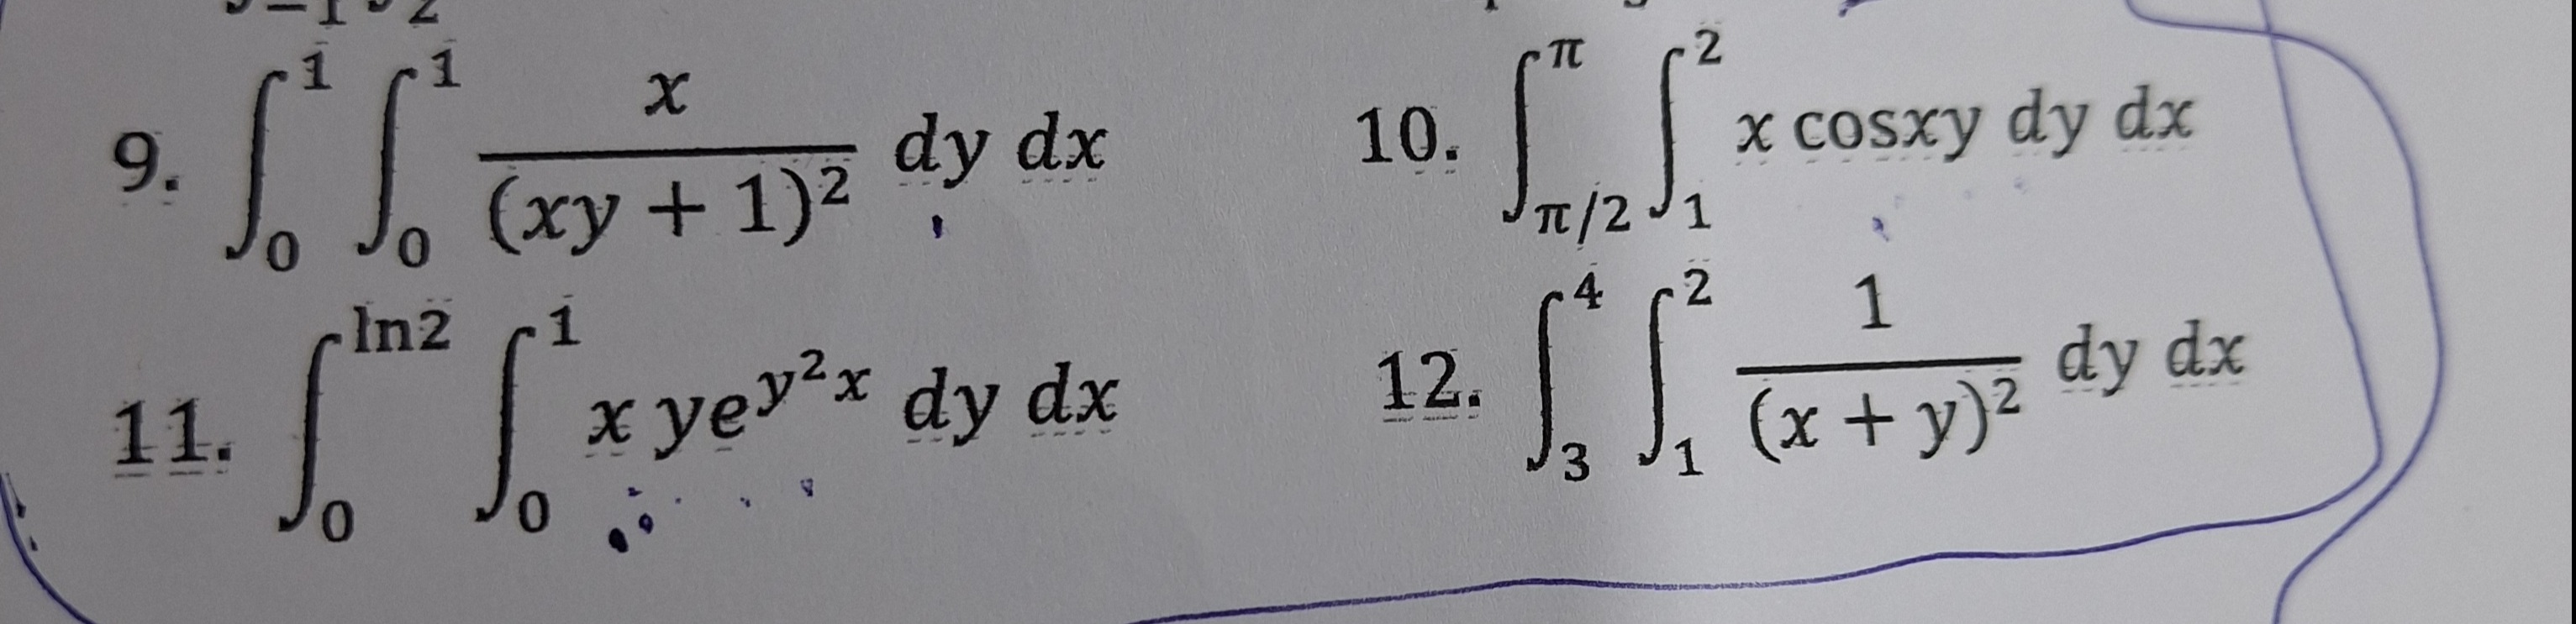 9. ∫₀¹ ∫₀¹ x/(xy + 1)² dy dx
10. ∫_{π/2}^{π} ∫₁² x cosxy dy dx
11. ∫₀^{ln2} ∫₀¹ x ye^{y²x} dy dx
12. ∫₃⁴ ∫₁² 1/(x + y)² dy dx